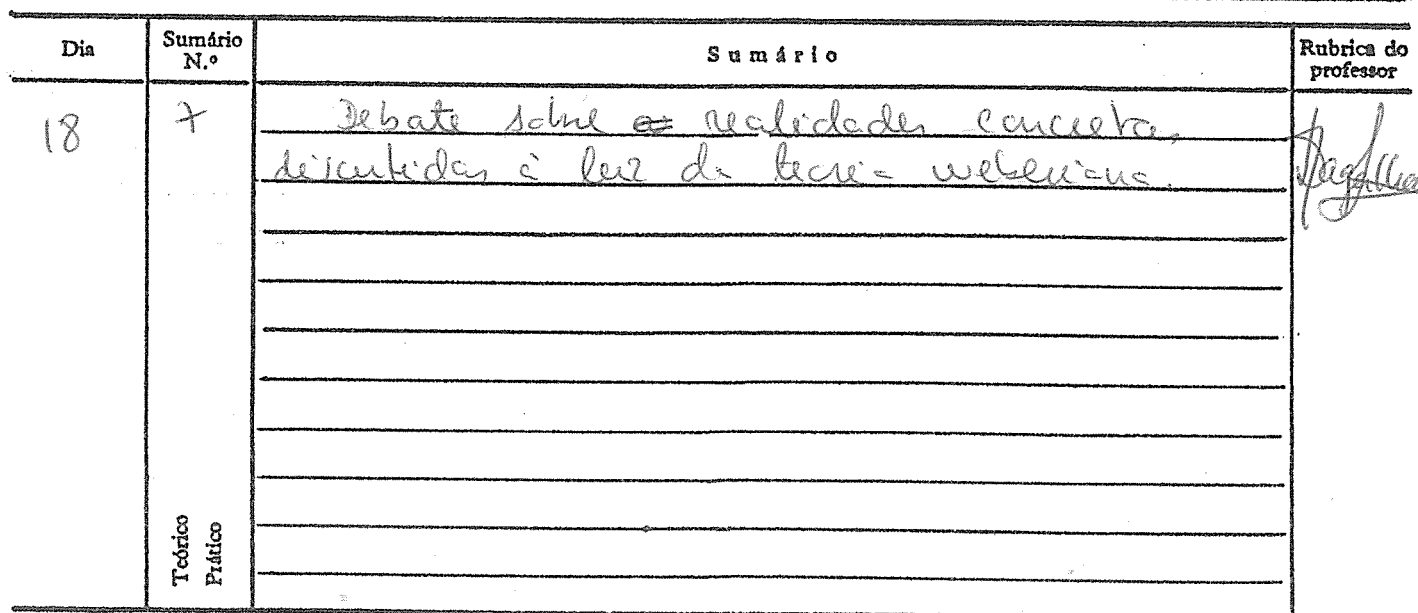 Dia
Sumário N.º
Sumário
Rubrica do professor
18
7
Debate sobre realidades concretas,
discutidas à luz da teoria weberiana.
Teórico
Prático